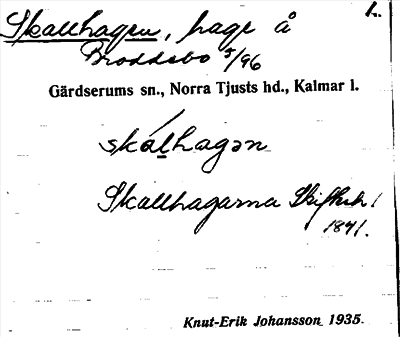 Skallhagen, hage å L.
Broddebo 5/96
Gärdserums sn., Norra Tjusts hd., Kalmar l.
skálhagən
Skallhagarna Skifteh 1
1841.
Knut-Erik Johansson 1935.